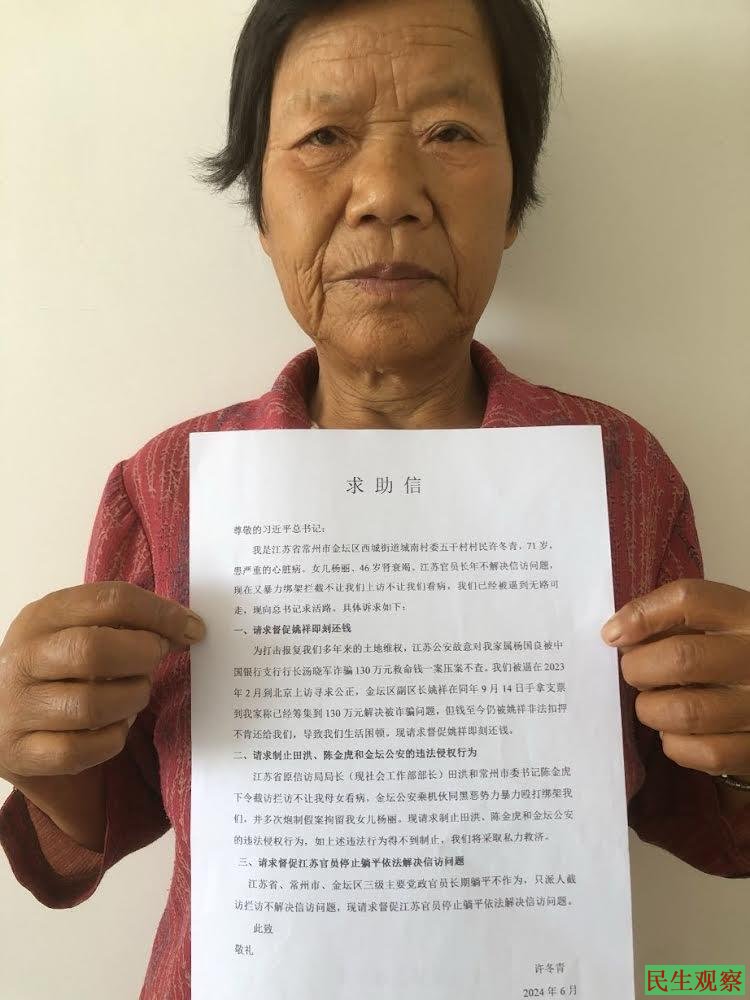 求助信
尊敬的习近平总书记:
我是江苏省常州市金坛区西城街道城南村委五干村村民许冬青,71岁,
患严重的心脏病。女儿杨丽,46岁肾衰竭。江苏官员长年不解决信访问题,
现在又暴力绑架拦截不让我们上访不让我们看病,我们已经被逼到无路可
走,现向总书记求活路。具体诉求如下:
一、请求督促姚祥即刻还钱
为打击报复我们多年来的土地维权,江苏公安故意对我家属杨国良被中
国银行支行行长汤晓军诈骗130万元救命钱一案压案不查。我们被逼在2023
年2月到北京上访寻求公正,金坛区副区长姚祥在同年9月14日手拿支票
到我家称已经筹集到130万元解决被诈骗问题,但钱至今仍被姚祥非法扣押
不肯还给我们,导致我们生活困顿。现请求督促姚祥即刻还钱。
二、请求制止田洪、陈金虎和金坛公安的违法侵权行为
江苏省原信访局局长(现社会工作部部长)田洪和常州市委书记陈金虎
下令截访拦访不让我母女看病,金坛公安乘机伙同黑恶势力暴力殴打绑架我
们,并多次炮制假案拘留我女儿杨丽。现请求制止田洪、陈金虎和金坛公安
的违法侵权行为,如上述违法行为得不到制止,我们将采取私力救济。
三、请求督促江苏官员停止躺平依法解决信访问题
江苏省、常州市、金坛区三级主要党政官员长期躺平不作为,只派人截
访拦访不解决信访问题,现请求督促江苏官员停止躺平依法解决信访问题。
此致
敬礼
许冬青
2024年6月
民生观察